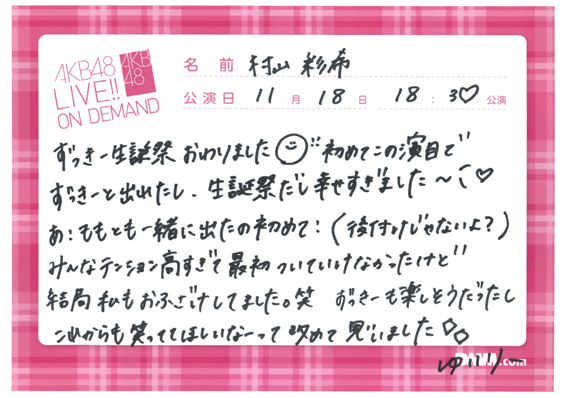 AKB48
LIVE!!
ON DEMAND
AKB
48
名 前 村山 彩希
公演日 11 月 18 日 18 : 30 公演
ずっきー生誕祭 おわりました 初めてこの演目で
ずっきーと出れたし、生誕祭だし幸せすぎました〜♡
あ!ももとも一緒に出たの初めて!(後付けじゃないよ?)
みんなテンション高すぎて最初ついていけなかったけど
結局私もおふざけしてました。笑 ずっきーも楽しそうだったし
これからも笑っててほしいなーって改めて思いました
DMM.com
ゆいりー